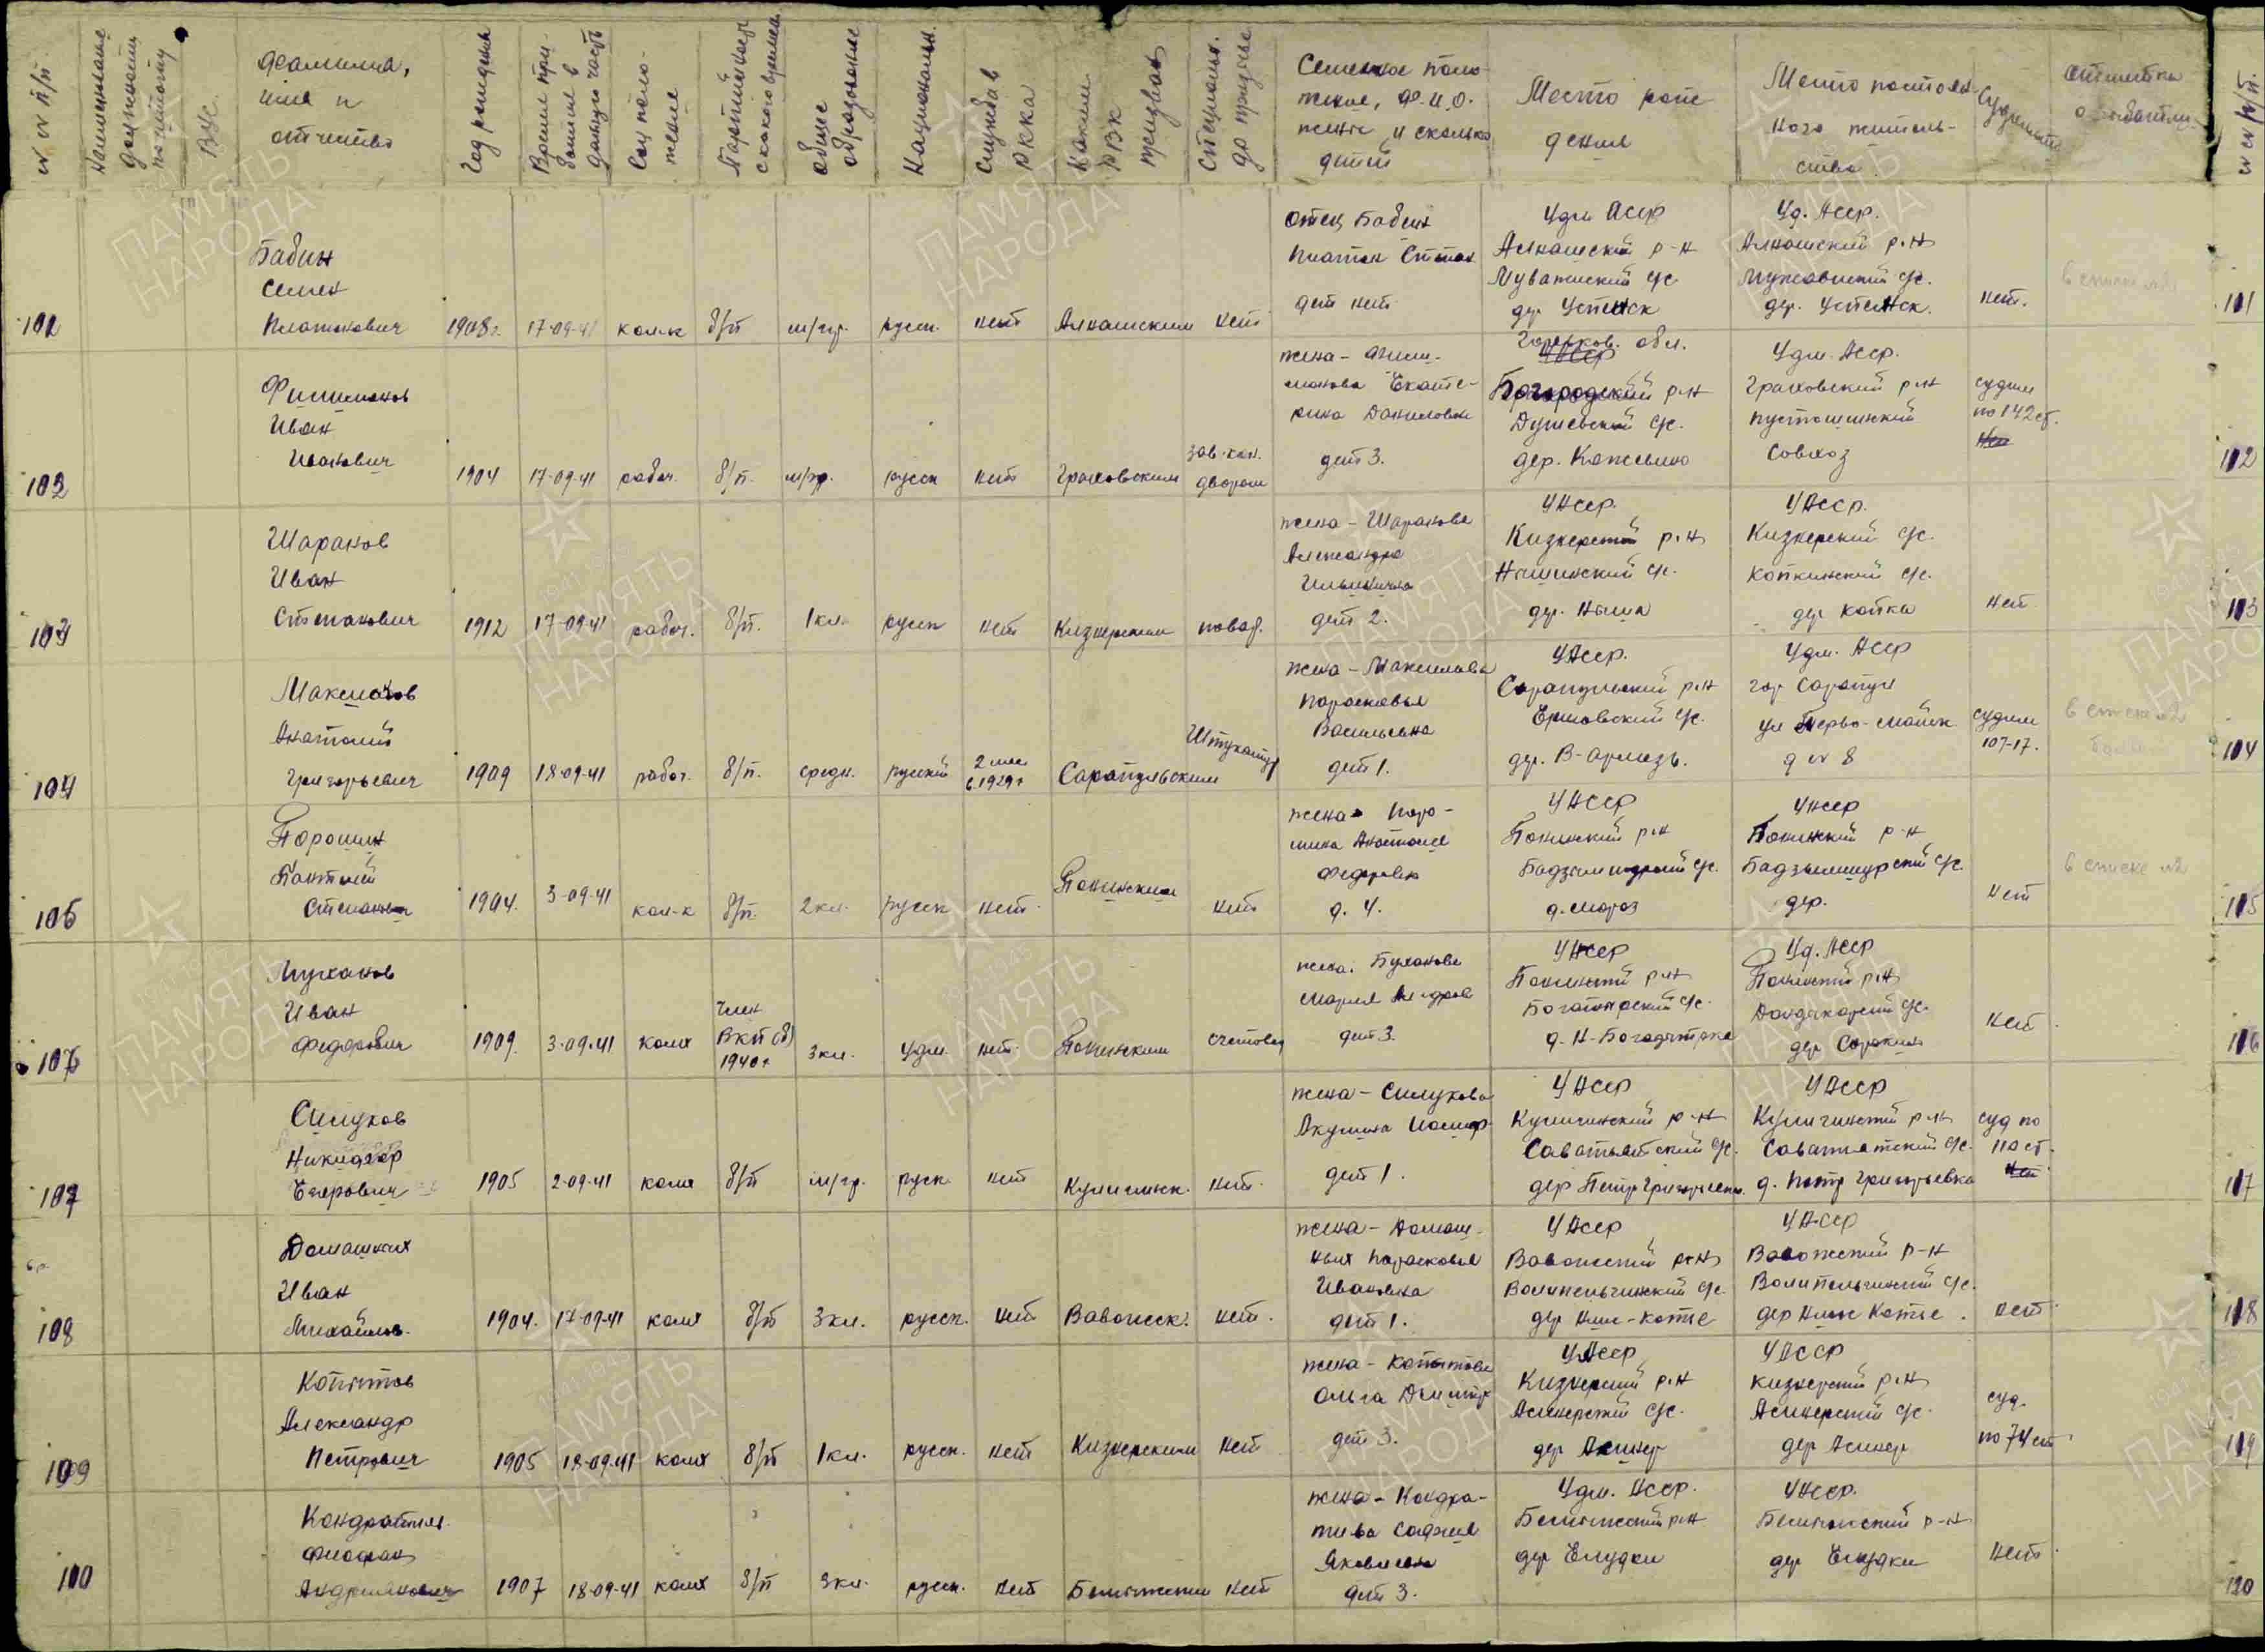 №№ п/п
Наименование должности по штатному
ВУС.
Фамилия, имя и отчество
Год рождения
Время прибытия в данную часть
Соц. положение
Партийность с какого времени
Общее образование
Националън.
Служба в РККА
Каким РВК призван
Специальн. до призыва
Семейное положение, Ф.И.О. жены и сколько детей
Место рождения
Место постоянного жительства
Судимость
№№ п/п.
102
Бабин
Семен
Платонович
1908г.
17-09-41
кол-к
б/п
м/гр.
русск.
нет
Алнашским
нет
отец Бабин
Платон Степан
дет нет
Удм АССР
Алнашский р-н
Муважский с/с
дер Успенск
Уд. АССР.
Алнашский р-н
дер. Успенск.
нет.
101
103
Филимонов
Иван
Иванович
1904
17-09-41
рабоч.
б/п.
м/гр.
русск
нет
Граховским
зав. кон.
двором
жена - Филимонова Екатерина Даниловна
дет 3.
Горьков. обл.
УАССР
Богородский р-н
Душевский с/с.
дер. Кожевино
Удм. АССР.
Граховский р-н
Пустошинский
Совхоз
судим
по 142 ст.
нет
102
103
Шаранов
Иван
Степанович
1912
17-09-41
рабоч.
б/п.
1 кл.
русск
нет
Кизнерским
повар.
жена - Шаранова
Александра
Ильинична
дет 2.
УАССР.
Кизнерский р-н
Нышинский с/с.
дер. Ныша
УАССР.
Кизнерский с/с.
Копкинский с/с.
дер Копка
нет
103
104
Максимов
Анатолий
Григорьевич
1909
18-09-41
рабоч.
б/п.
средн.
русский
2 мес
с 1929г
Сарапульским
Штукатур
жена - Максимова
Парасковья
Васильевна
дет 1.
УАССР.
Сарапульский р-н
Ершовский с/с.
дер. В-Армязь.
Удм. АССР
гор Сарапул
ул Перво-майск
д № 8
судим
107-17.
в списке №2
104
105
Порошин
Пантелей
Степанов
1904.
3-09-41
кол-к
б/п.
2 кл.
русск
нет.
Понинским
нет
жена - Порошина Анастасия
Федоровна
д. 4.
УАССР
Понинский р-н
д. Мороз
УАССР
Понинский р-н
Бадзымшурский с/с.
дер.
нет
в списке №2
105
107
Иван
Федорович
1909.
3-09-41
колх
член
ВКП(б)
1940г
3 кл.
удм.
нет.
Понинским
счетовод
жена. Буханова
Мария
дет 3.
УАССР
Понинский р-н
Уд. АССР
Понинский р-н
нет
116
107
Силуков
Никифор
Егорович
1905
2-09-41
колх
б/п
м/гр.
русск.
нет
Кулигинск.
нет.
жена - Силукова
Акулина
дет 1.
УАССР
Кулигинский р-н
Саватятский с/с.
УАССР
Кулигинский р-н
Саватятский с/с.
д. Петр Григорьевка
суд по
110 ст.
нет
117
108
Домашних
Иван
Михайлов.
1904.
17-09-41
колх
б/п
3 кл.
русск.
нет
Вавожск.
нет.
жена - Домашних Парасковья
Ивановна
дет 1.
УАССР
Вавожский р-н
Волипельгинский с/с.
дер Ниж-Котье
УАССР
Вавожский р-н
Волипельгинский с/с.
дер Ниж Котье.
нет.
118
109
Копытов
Александр
Петрович
1905
18-09-41
колх
б/п
1 кл.
русск.
нет
Кизнерским
нет
жена - Копытова
Ольга Дмитр
дет 3.
УАССР
Кизнерский р-н
Асинерский с/с.
дер Асинер
УАССР
Кизнерский р-н
Асинерский с/с.
дер Асинер
суд.
по 74 ст
119
110
Кондратьев.
Феофан
Андриянович
1907
18-09-41
колх
б/п
3 кл.
русск.
нет
нет
жена - Кондратьева
Яковлевна
дет 3.
Удм. АССР.
дер Елудки
УАССР.
дер Елудки
нет.
120